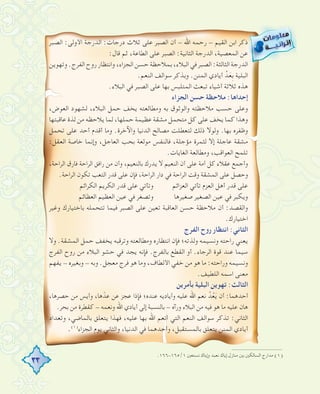 معلومات إثرائية
ذكر ابن القيم – رحمه الله – أن الصبر على ثلاث درجات: الدرجة الأولى: الصبر
عن المعصية، الدرجة الثانية: الصبر على الطاعة، ثم قال:
الدرجة الثالثة: الصبر في البلاء، بملاحظة حسن الجزاء، وانتظار روح الفرج. وتهوين
البلية بعدّ أيادي المنن. وبذكر سوالف النعم.
هذه ثلاثة أشياء تبعث المتلبس بها على الصبر في البلاء.
إحداها: ملاحظة حسن الجزاء
وعلى حسب ملاحظته والوثوق به ومطالعته يخف حمل البلاء، لشهود العوض،
وهذا كما يخف على كل متحمل مشقة عظيمة حملها، لما يلاحظه من لذة عاقبتها
وظفره بها. ولولا ذلك لتعطلت مصالح الدنيا والآخرة. وما أقدم أحد على تحمل
مشقة عاجلة إلا لثمرة مؤجلة، فالنفس مولعة بحب العاجل، وإنما خاصة العقل:
تلمح العواقب، ومطالعة الغايات.
وأجمع عقلاء كل أمة على أن النعيم لا يدرك بالنعيم، وأن من رافق الراحة فارق الراحة،
وحصل على المشقة وقت الراحة في دار الراحة، فإن على قدر التعب تكون الراحة.
على قدر أهل العزم تأتي العزائم وتأتي على قدر الكريم الكرائم
ويكبر في عين الصغير صغيرها وتصغر في عين العظيم العظائم
والقصد: أن ملاحظة حسن العاقبة تعين على الصبر فيما تتحمله باختيارك وغير
اختيارك.
الثاني: انتظار روح الفرج
يعني راحته ونسيمه ولذته؛ فإن انتظاره ومطالعته وترقبه يخفف حمل المشقة. ولا
سيما عند قوة الرجاء. أو القطع بالفرج. فإنه يجد في حشو البلاء من روح الفرج
ونسيمه وراحته: ما هو من خفي الألطاف، وما هو فرج معجل. وبه – وبغيره – يفهم
معنى اسمه اللطيف.
الثالث: تهوين البلية بأمرين
أحدهما: أن يَعُدّ نعم الله عليه وأياديه عنده؛ فإذا عجز عن عدها، وأيس من حصرها،
هان عليه ما هو فيه من البلاء ورآه – بالنسبة إلى أيادي الله ونعمه – كقطرة من بحر.
الثاني: تذكر سوالف النعم التي أنعم الله بها عليه، فهذا يتعلق بالماضي، وتعداد
أيادي المنن يتعلق بالمستقبل، وأحدهما في الدنيا، والثاني يوم الجزاء(١).
(١) مدارج السالكين بين منازل إياك نعبد وإياك نستعين ١/ ١٦٥-١٦٦.
٣٣